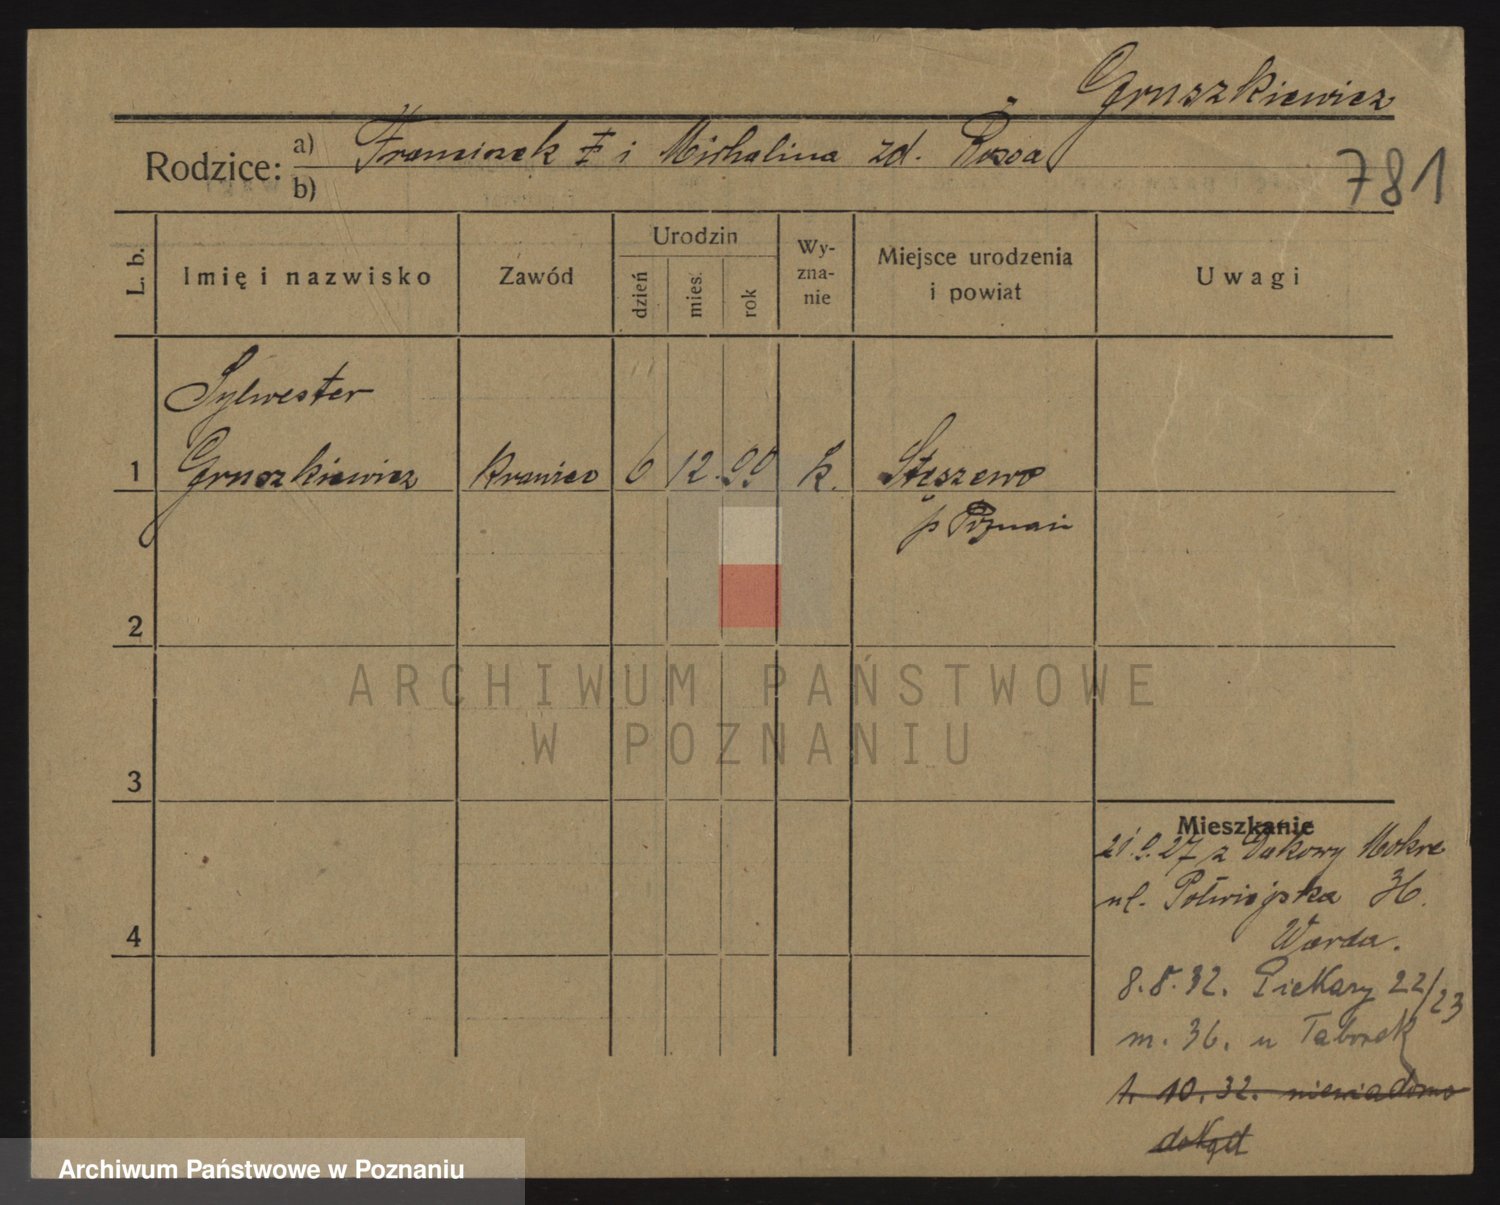 Gruszkiewicz
Rodzice: a) Franciszek i Michalina zd.
b)
781
L. b.
Imię i nazwisko
Zawód
Urodzin
dzień
mies.
rok
Wy-
zna-
nie
Miejsce urodzenia
i powiat
Uwagi
Sylwester
1 Gruszkiewicz krawiec 6 12. 99 k. Stęszewo
p Poznań
2
3
4
ARCHIWUM PAŃSTWOWE
W POZNANIU
Mieszkanie
27 z Dakowy Mokre
ul. Półwiejska 36.
Warda.
8.8.32. Piekary 22/23
m. 36. u Taborek
1. 10. 32. niewiadomo
dokąd
Archiwum Państwowe w Poznaniu